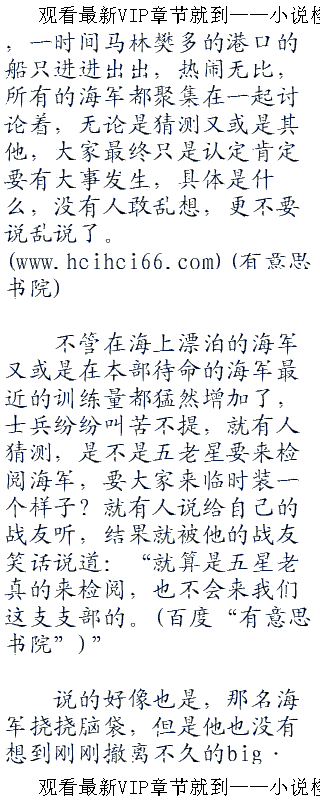 观看最新VIP章节就到——小说检
，一时间马林樊多的港口的
船只进进出出，热闹无比，
所有的海军都聚集在一起讨
论着，无论是猜测又或是其
他，大家最终只是认定肯定
要有大事发生，具体是什
么，没有人敢乱想，更不要
说乱说了。
(www.hcihci66.com)(有意思
书院)
不管在海上漂泊的海军
又或是在本部待命的海军最
近的训练量都猛然增加了，
士兵纷纷叫苦不提，就有人
猜测，是不是五老星要来检
阅海军，要大家来临时装一
个样子？就有人说给自己的
战友听，结果就被他的战友
笑话说道：“就算是五星老
真的来检阅，也不会来我们
这支支部的。(百度“有意思
书院”)”
说的好像也是，那名海
军挠挠脑袋，但是他也没有
想到刚刚撤离不久的big·
观看最新VIP章节就到——小说检